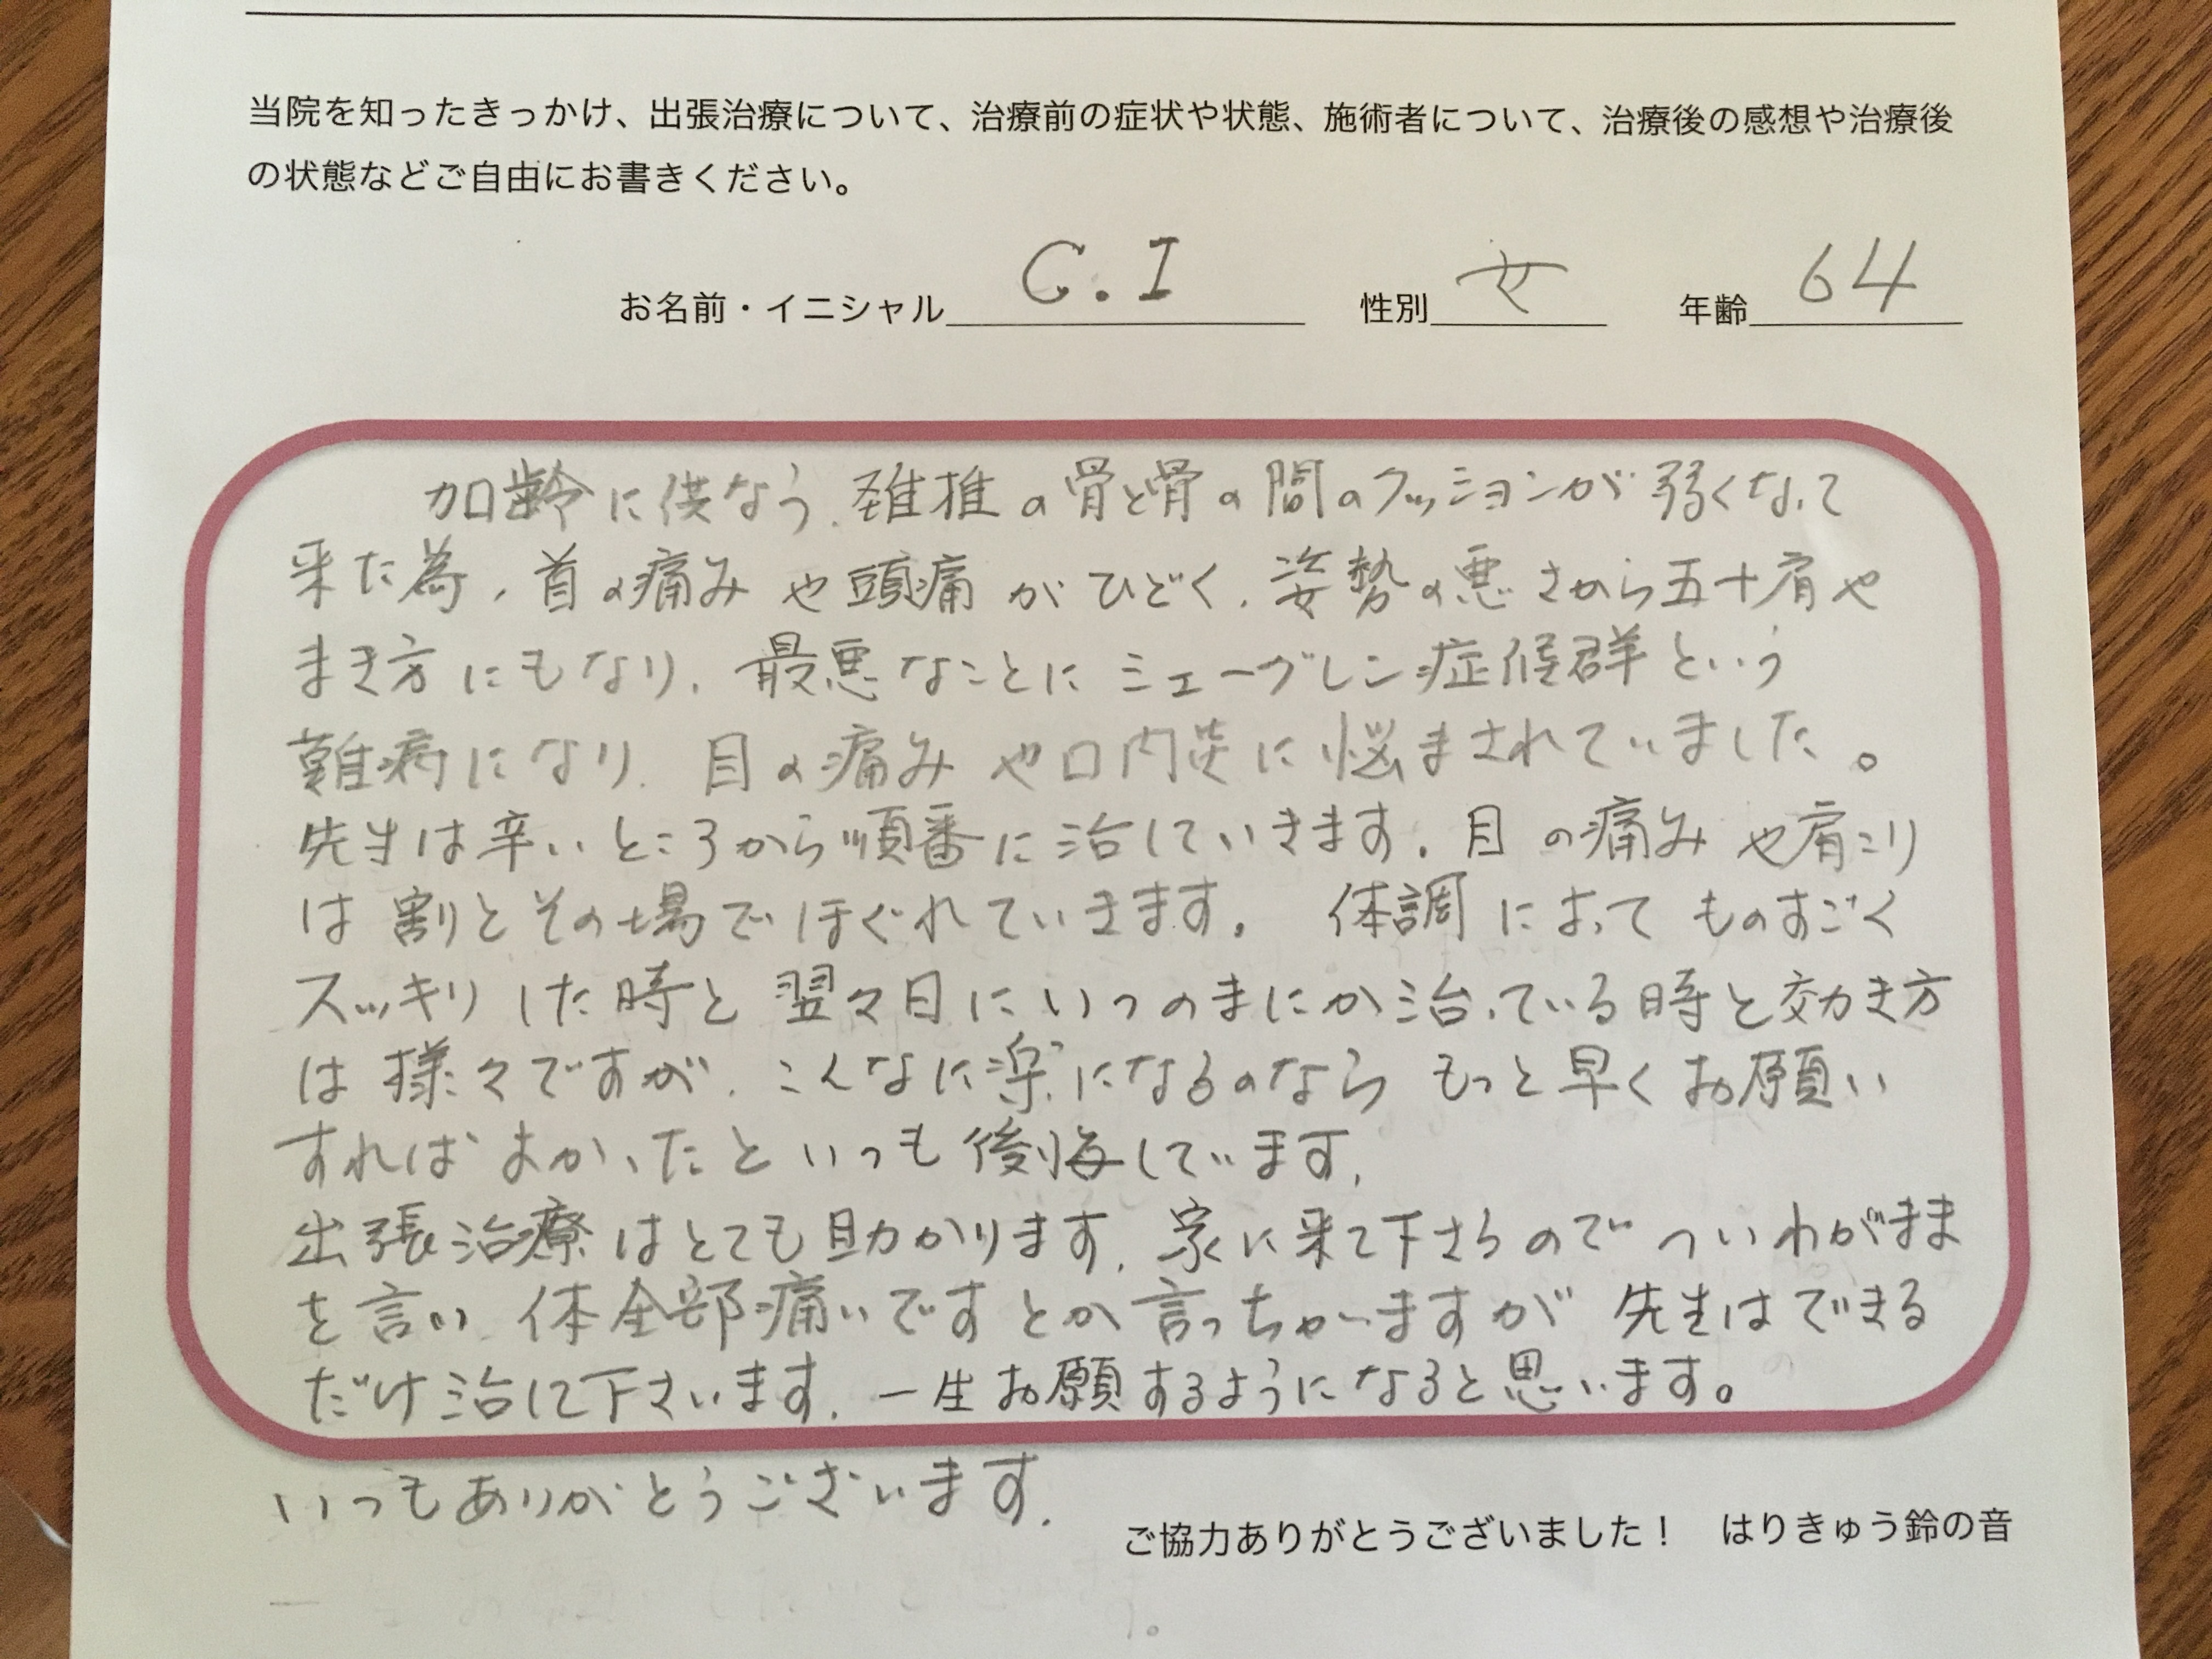 当院を知ったきっかけ、出張治療について、治療前の症状や状態、施術者について、治療後の感想や治療後
の状態などご自由にお書きください。
お名前・イニシャル C.I 性別 女 年齢 64
加齢に供なう、頚推の骨と骨の間のクッションが弱くなって
来た為、首の痛みや頭痛がひどく、姿勢の悪さから五十肩や
まき方にもなり、最悪なことにシェーグレン症候群という
難病になり、目の痛みや口内炎に悩まされていました。
先生は辛いところから順番に治していきます。目の痛みや肩こり
は割とその場でほぐれていきます。 体調によってものすごく
スッキリした時と翌々日にいつのまにか治っている時と効き方
は様々ですが、こんなに楽になるのなら もっと早くお願い
すればよかったといつも後悔しています。
出張治療はとても助かります。家に来て下さるのでついわがまま
を言い、体全部痛いですとか言っちゃいますが 先生はできる
だけ治して下さいます。一生お願するようになると思います。
いつもありがとうございます。
ご協力ありがとうございました！ はりきゅう鈴の音